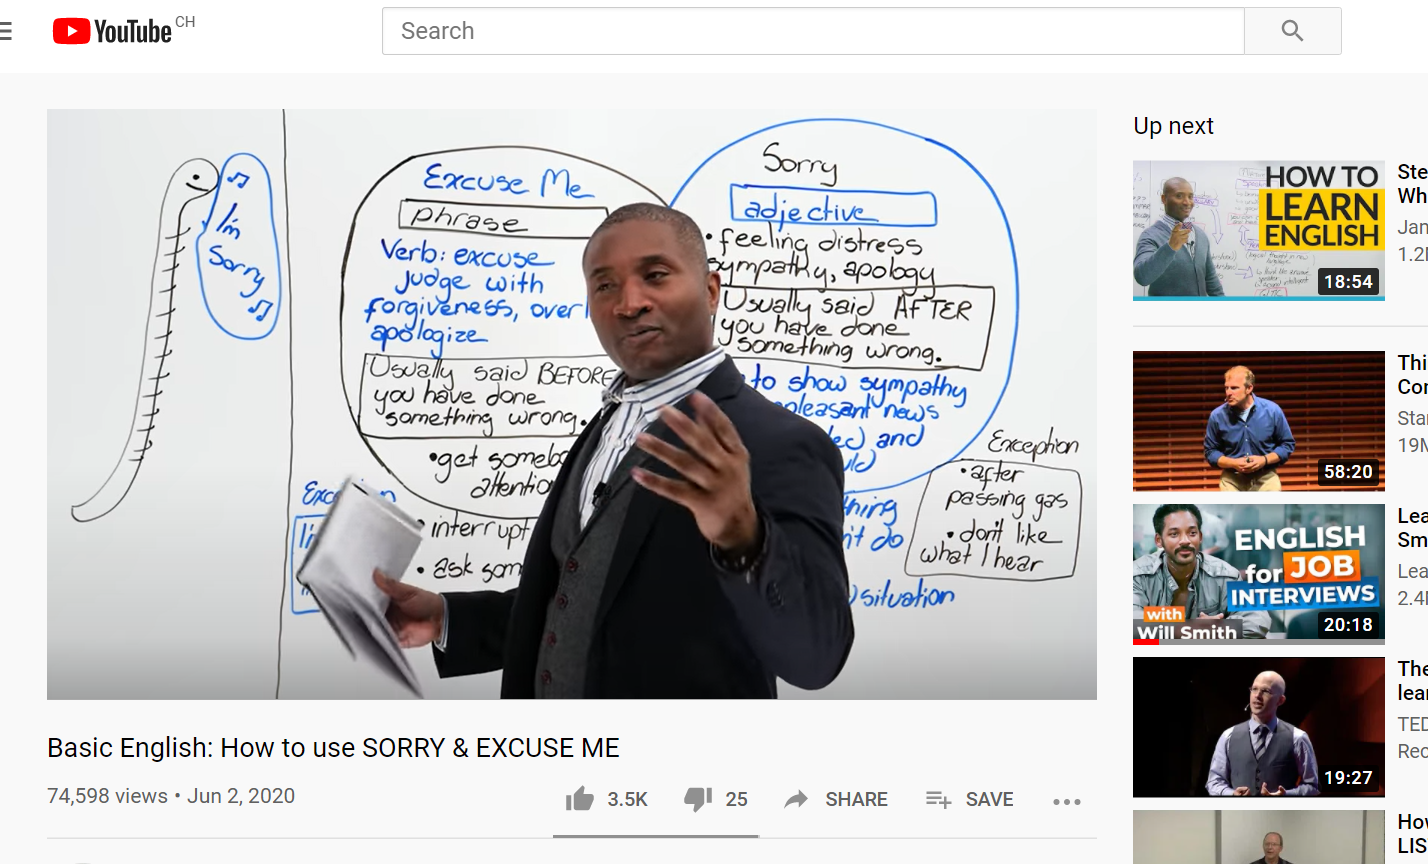 YouTube CH
Search
Excuse Me
phrase
Verb: excuse
judge with
forgiveness, over
apologize
Usually said BEFORE
you have done
something wrong.
•get
attention
• interrupt
• ask
♫
I'm
Sorry
♫
Sorry
adjective
• feeling distress
sympathy, apology
Usually said AFTER
you have done
something wrong.
to show sympathy
news
and
do
situation
Exception
•after
passing gas
•don't like
what I hear
Basic English: How to use SORRY & EXCUSE ME
74,598 views • Jun 2, 2020
3.5K
25
SHARE
SAVE
Up next
HOW TO
LEARN
ENGLISH
18:54
Ste
Wh
Jan
1.2
58:20
Thi
Cor
Star
19M
ENGLISH
for JOB
INTERVIEWS
with
Will Smith
20:18
Lea
Sm
Lea
2.4
19:27
The
lear
TED
Rec
How
LIS